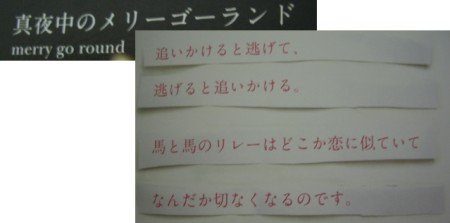 真夜中のメリーゴーランド
merry go round
追いかけると逃げて、
逃げると追いかける。
馬と馬のリレーはどこか恋に似ていて
なんだか切なくなるのです。